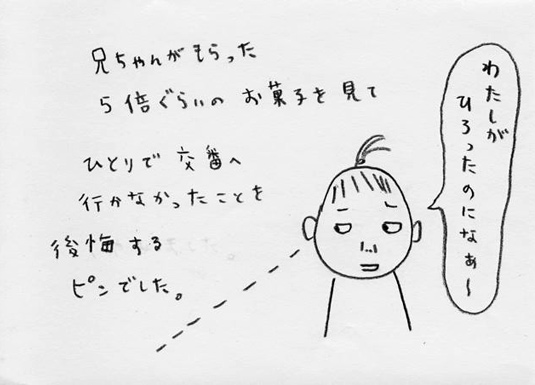 兄ちゃんがもらった
5倍ぐらいの お菓子を見て
ひとりで 交番へ
行かなかったことを
後悔する
ピンでした。
わたしが
ひろったのになぁ～